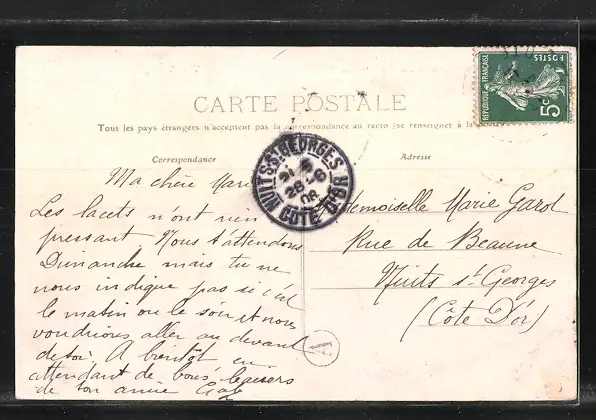 CARTE POSTALE
Tous les pays étrangers n'acceptent pas la correspondance au recto (se renseigner à la
Correspondance
Adresse
Ma chère Mar
Les lacets n'ont rien
pressant Nous t'attendons
Dimanche mais tu ne
nous indique pas si c'est
le matin ou le soir et nous
voudrions aller au devant
de toi. A bientôt en
attendant de bons baisers
de ton amie
demoiselle Marie Garot
Rue de Beaune
Nuits St-Georges
(Côte D'or)
REPUBLIQUE FRANÇAISE
POSTES
5c
NUITS-S-GEORGES
COTE D'OR